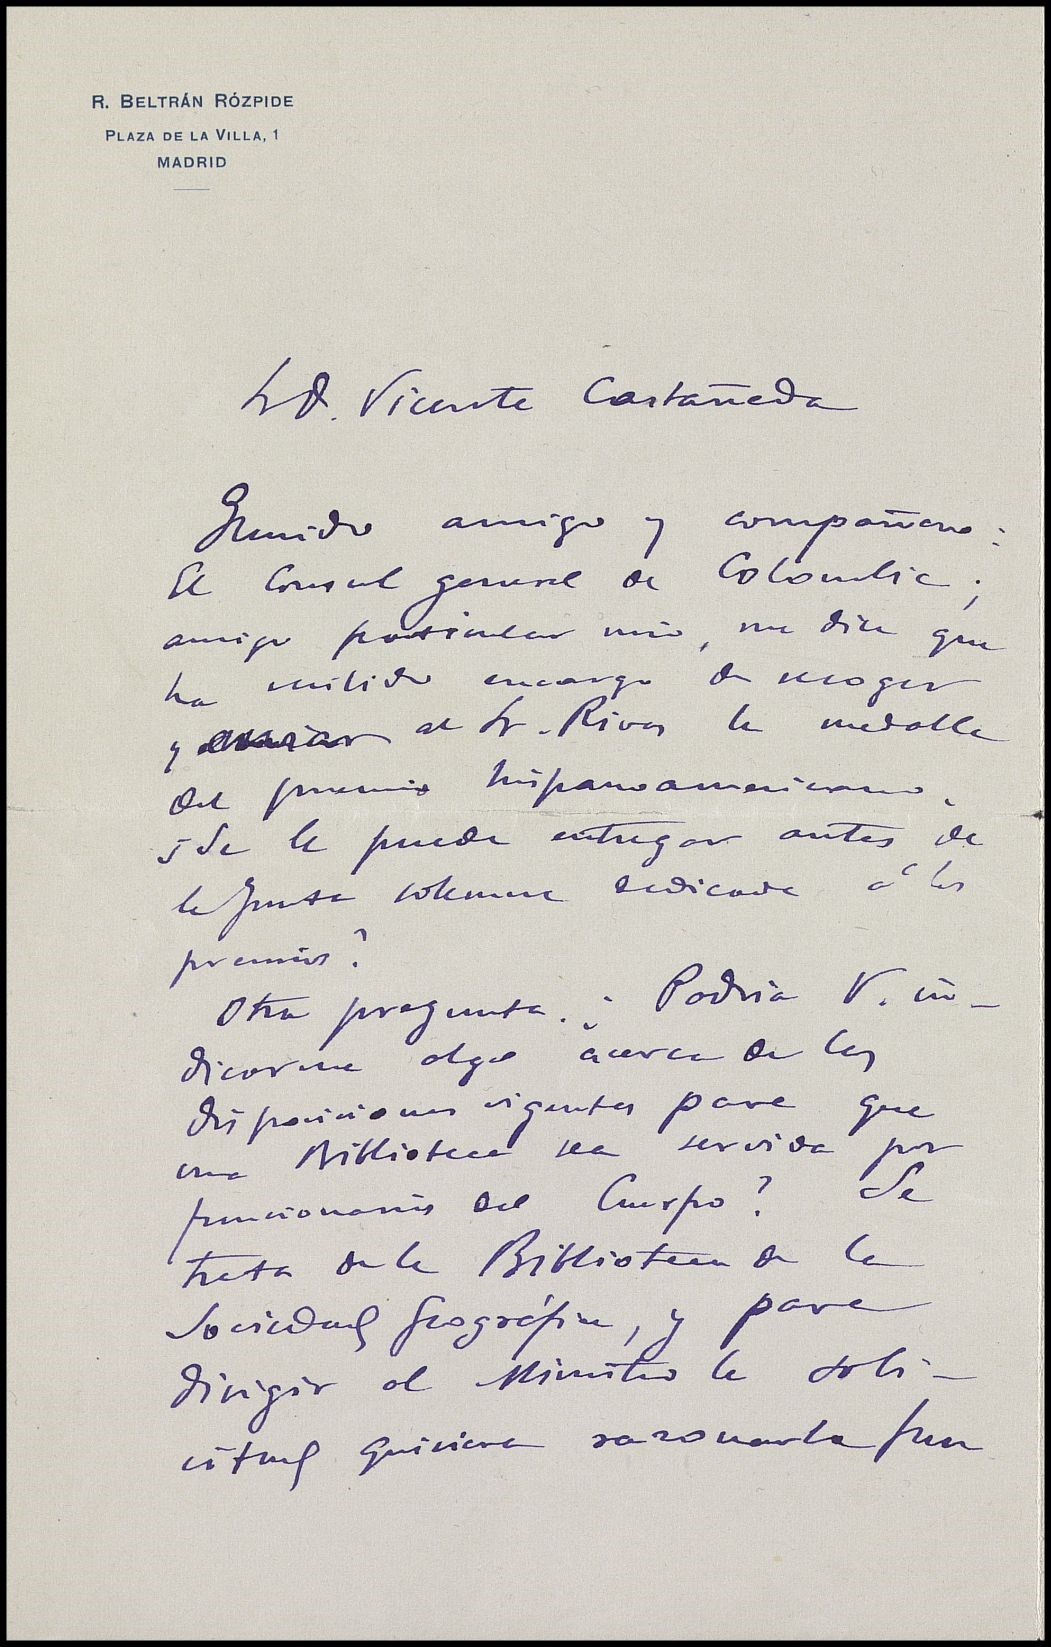 R. BELTRÁN RÓZPIDE
PLAZA DE LA VILLA, 1
MADRID
Sr D. Vicente Castañeda
Querido amigo y compañero:
El Consul general de Colombia,
amigo particular mio, me dice que
ha recibido encargo de recoger
y enviar al Sr. Rivas la medalla
del premio hispanoamericano.
¿Se le puede entregar antes de
la Junta solemne dedicada á los
premios?
Otra pregunta. ¿Podria V. in-
dicarme algo acerca de las
disposiciones vigentes para que
una Biblioteca sea servida por
funcionarios del Cuerpo? Se
trata de la Biblioteca de la
Sociedad Geográfica, y para
dirigir al Ministro la soli-
citud quisiera razonarla fun